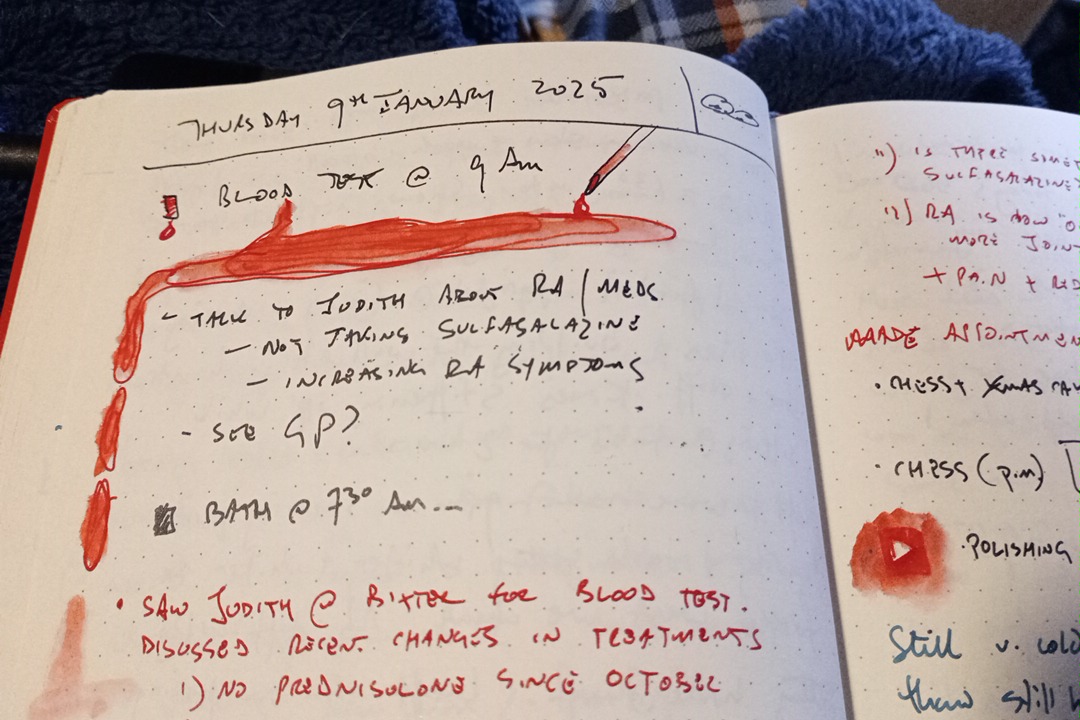 THURSDAY 9TH JANUARY 2025
BLOOD TEST @ 9 Am
- TALK TO JUDITH ABOUT RA / MEDS
- NOT TAKING SULFASALAZINE
- INCREASING RA SYMPTOMS
- SEE GP?
BATH @ 7 30 Am...
• SAW JUDITH @ BIXTER FOR BLOOD TEST.
DISCUSSED RECENT CHANGES IN TREATMENTS
1) NO PREDNISOLONE SINCE OCTOBER
11) IS THERE
SULFASALAZINE
12) RA IS NOW
MORE JOINT
+ PAIN + RED
MADE APPOINTMEN
• CHESS + XMAS
• CHESS (p.m)
• POLISHING
Still v. cold
still